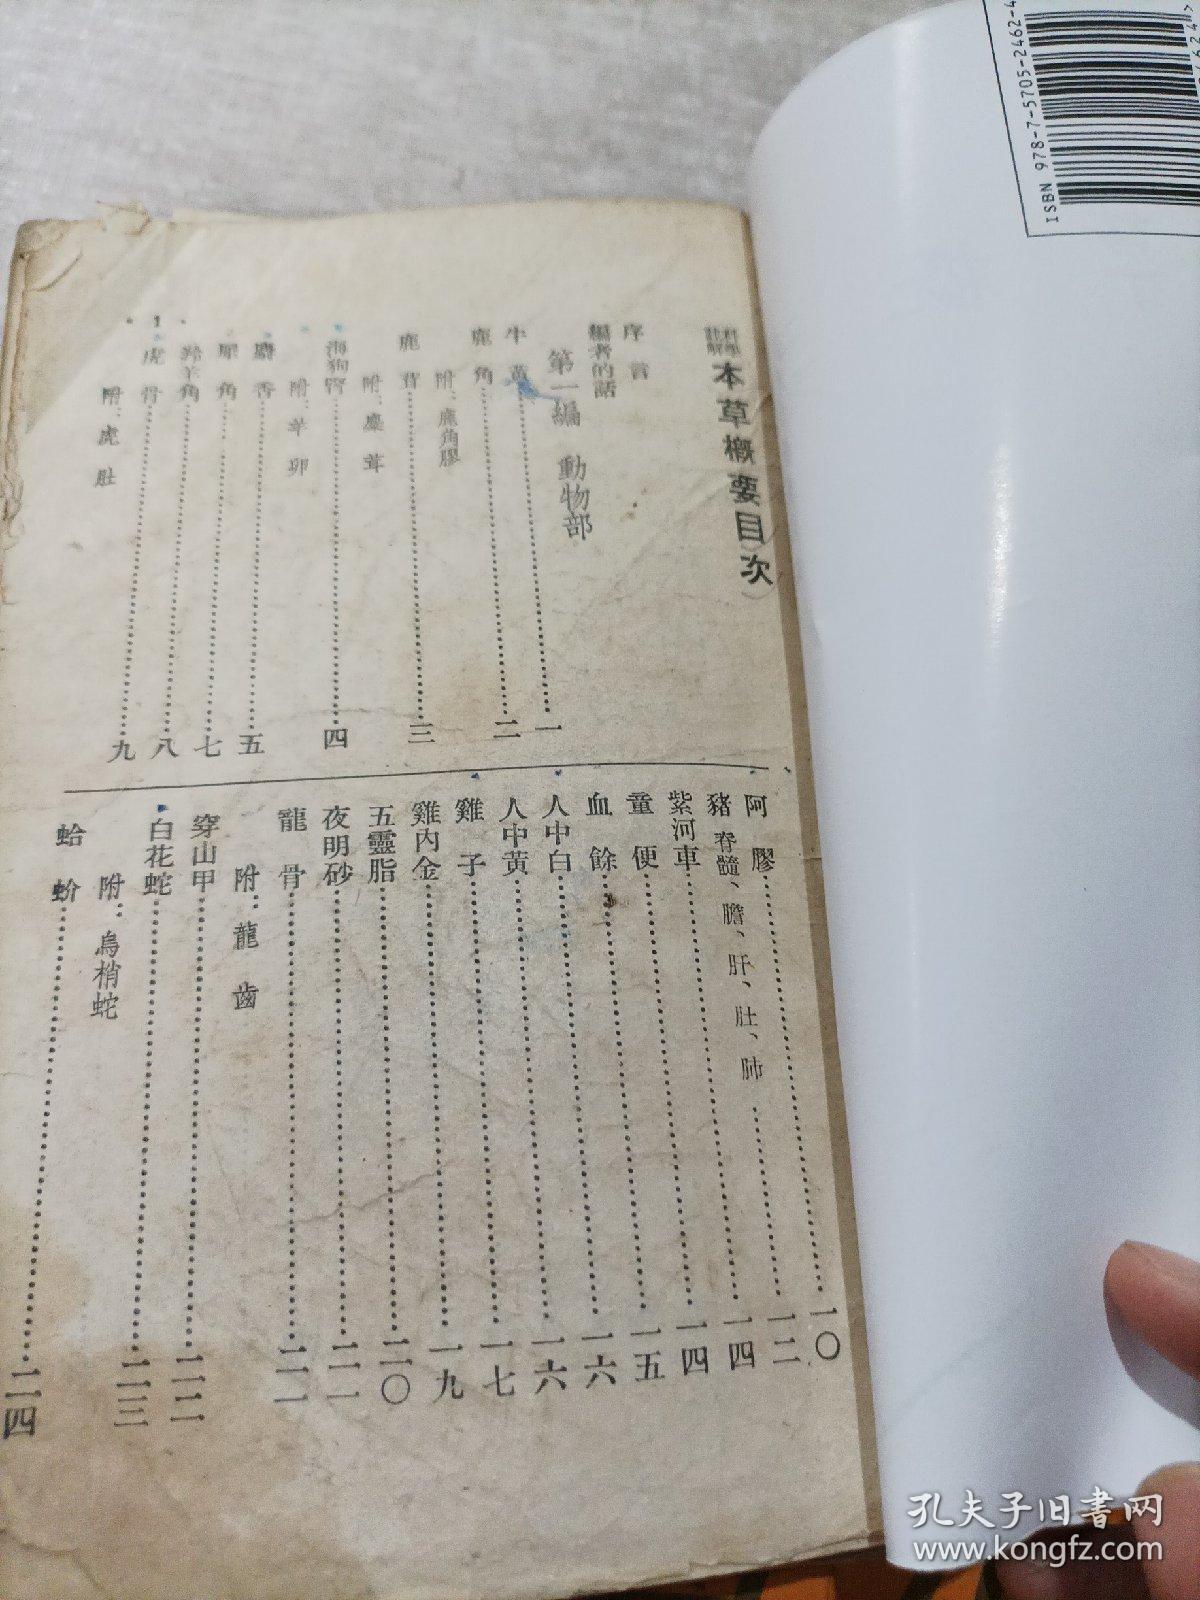 科學註解
本草概要目次
序言
編者的話
第一編 動物部
牛黃⋯⋯一
鹿角⋯⋯二
附：鹿角膠
鹿茸⋯⋯三
附：麋茸
海狗腎⋯⋯四
附：羊卵
麝香⋯⋯五
犀角⋯⋯七
羚羊角⋯⋯八
虎骨⋯⋯九
附：虎肚
1
阿膠⋯⋯一〇
豬脊髓、膽、肝、肚、肺⋯⋯一二
紫河車⋯⋯一四
童便⋯⋯一四
血餘⋯⋯一五
人中白⋯⋯一六
人中黃⋯⋯一六
雞子⋯⋯一七
雞內金⋯⋯一九
五靈脂⋯⋯二〇
夜明砂⋯⋯二一
龍骨⋯⋯二一
附：龍齒
穿山甲⋯⋯二二
白花蛇⋯⋯二三
附：烏梢蛇
蛤蚧⋯⋯二四
ISBN 978-7-5705-2462-4
孔夫子旧书网
www.kongfz.com